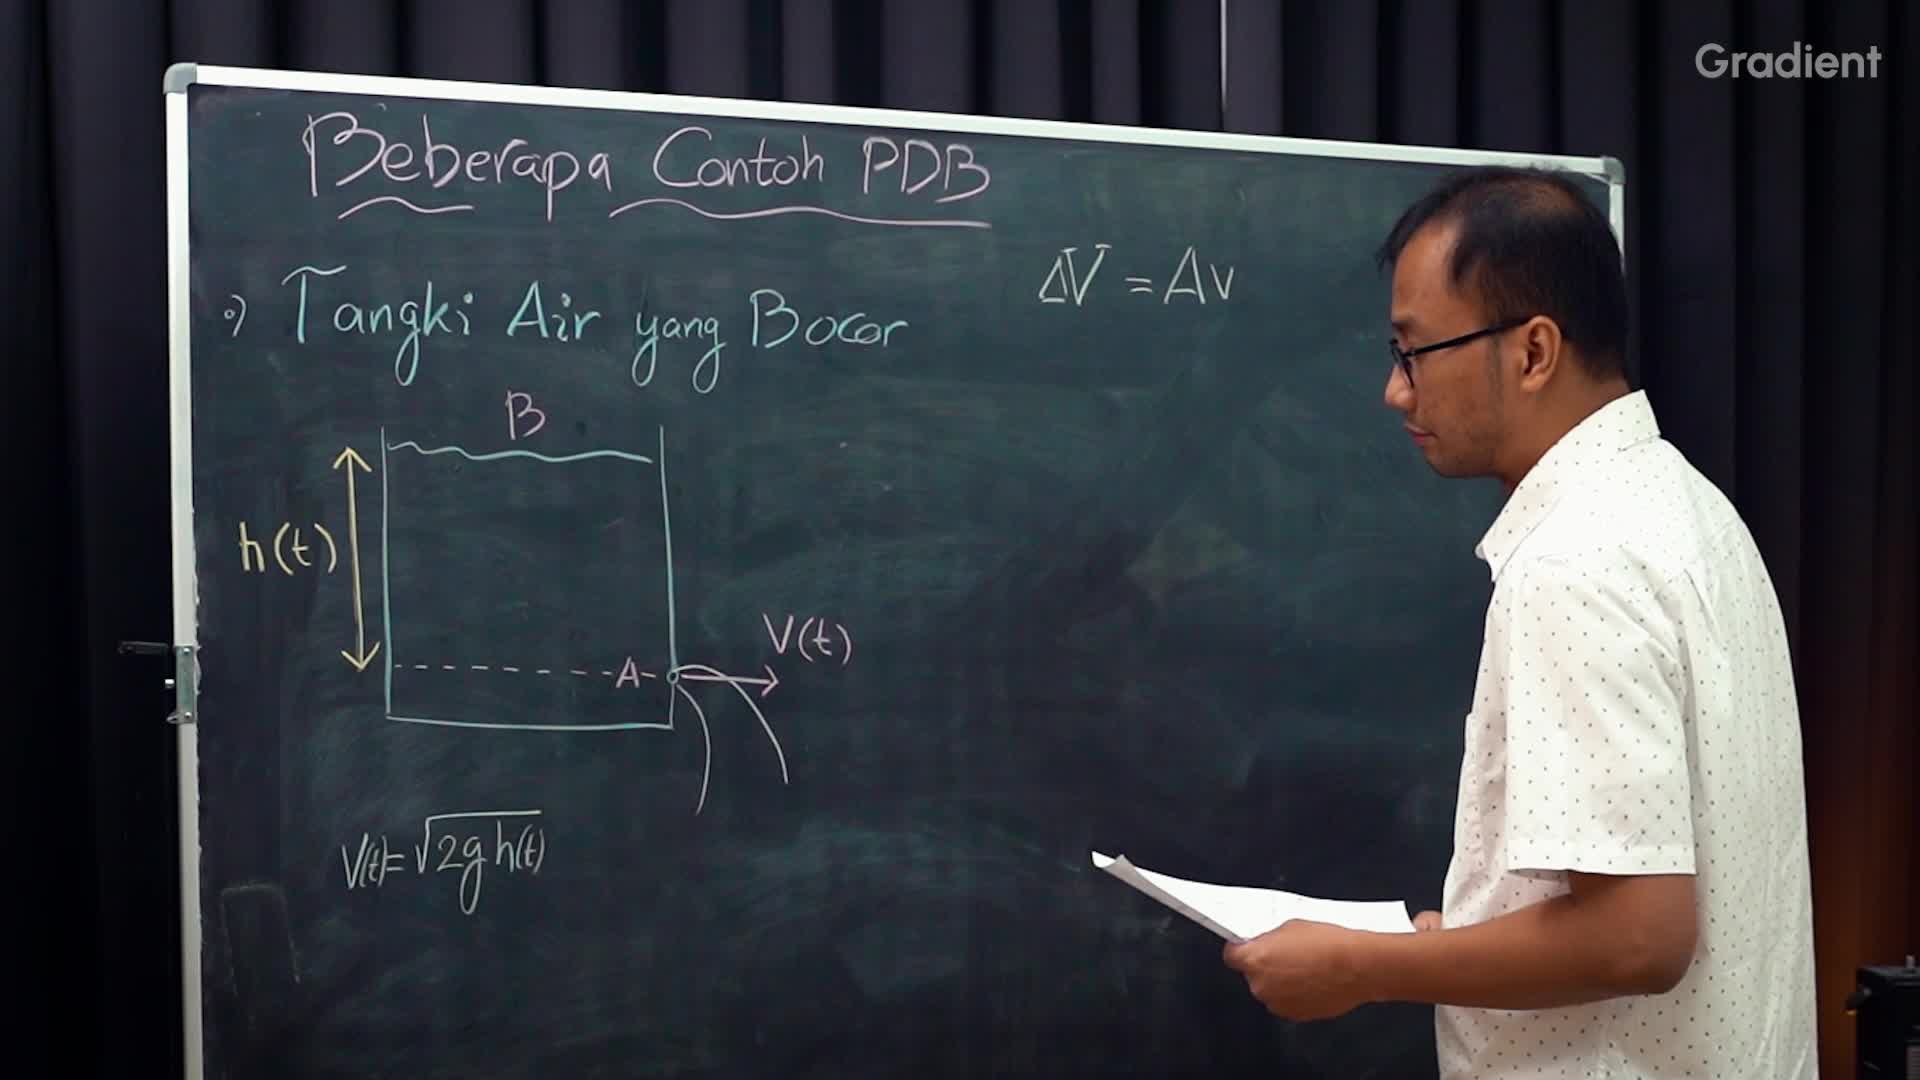 Gradient
Beberapa Contoh PDB
ΔV = Av
•) Tangki Air yang Bocor
B
h(t)
V(t)
A
V(t)=√2g h(t)